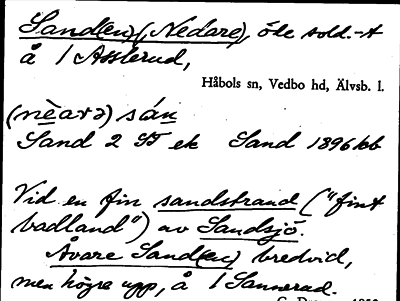 Sand(en)(,Nedare), öde sold.-t
å 1 Asslerud,
Håbols sn, Vedbo hd, Älvsb. l.
(nèarə) sán
Sand 2 ST ek Sand 1896 kb
Vid en fin sandstrand ("fint
badland") av Sandsjö.
Åvare Sand(en) bredvid,
men högre upp, å 1 Sannerud.